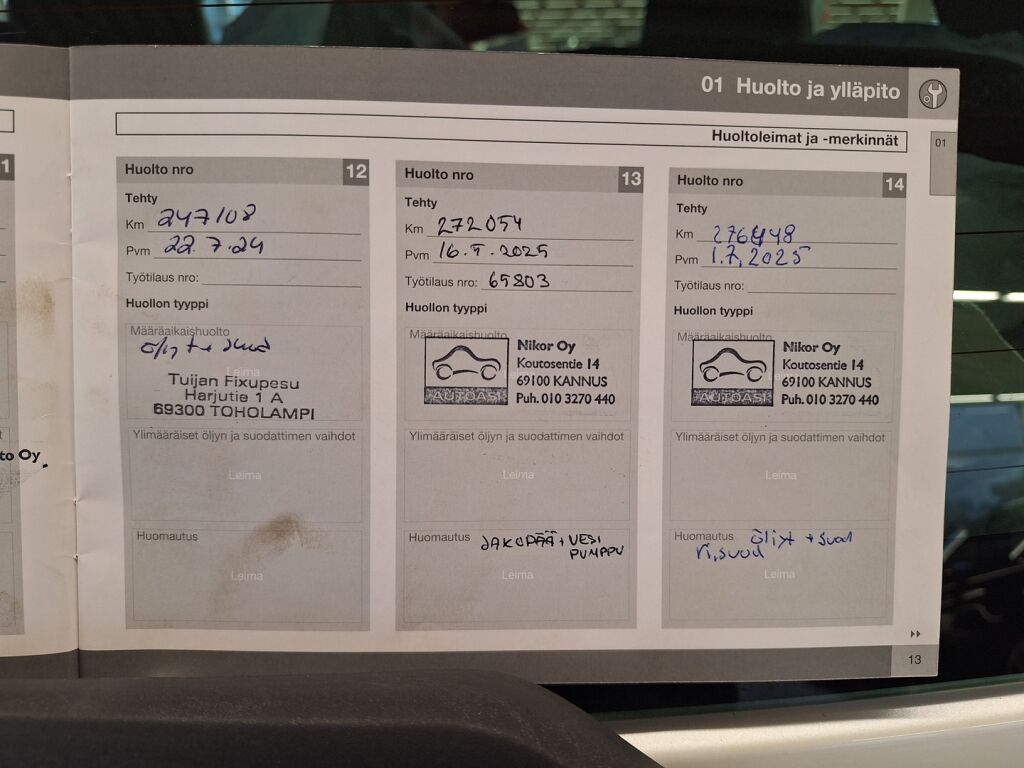 01 Huolto ja ylläpito
Huoltoleimat ja -merkinnät
01
1
to Oy.
Huolto nro 12
Tehty
Km 247108
Pvm 22.7.24
Työtilaus nro:
Huollon tyyppi
Määräaikaishuolto
Leima
Tuijan Fixupesu
Harjutie 1 A
69300 TOHOLAMPI
Ylimääräiset öljyn ja suodattimen vaihdot
Leima
Huomautus
Leima
Huolto nro 13
Tehty
Km 272054
Pvm 16.5.2025
Työtilaus nro: 65803
Huollon tyyppi
Määräaikaishuolto
AUTOASI
Nikor Oy
Koutosentie 14
69100 KANNUS
Puh. 010 3270 440
Ylimääräiset öljyn ja suodattimen vaihdot
Leima
Huomautus JAKOPÄÄ + VESI
PUMPPU
Leima
Huolto nro 14
Tehty
Km 276448
Pvm 1.7.2025
Työtilaus nro:
Huollon tyyppi
Määräaikaishuolto
AUTOASI
Nikor Oy
Koutosentie 14
69100 KANNUS
Puh. 010 3270 440
Ylimääräiset öljyn ja suodattimen vaihdot
Leima
Huomautus Öljyt + suod
ri,suod
Leima
13